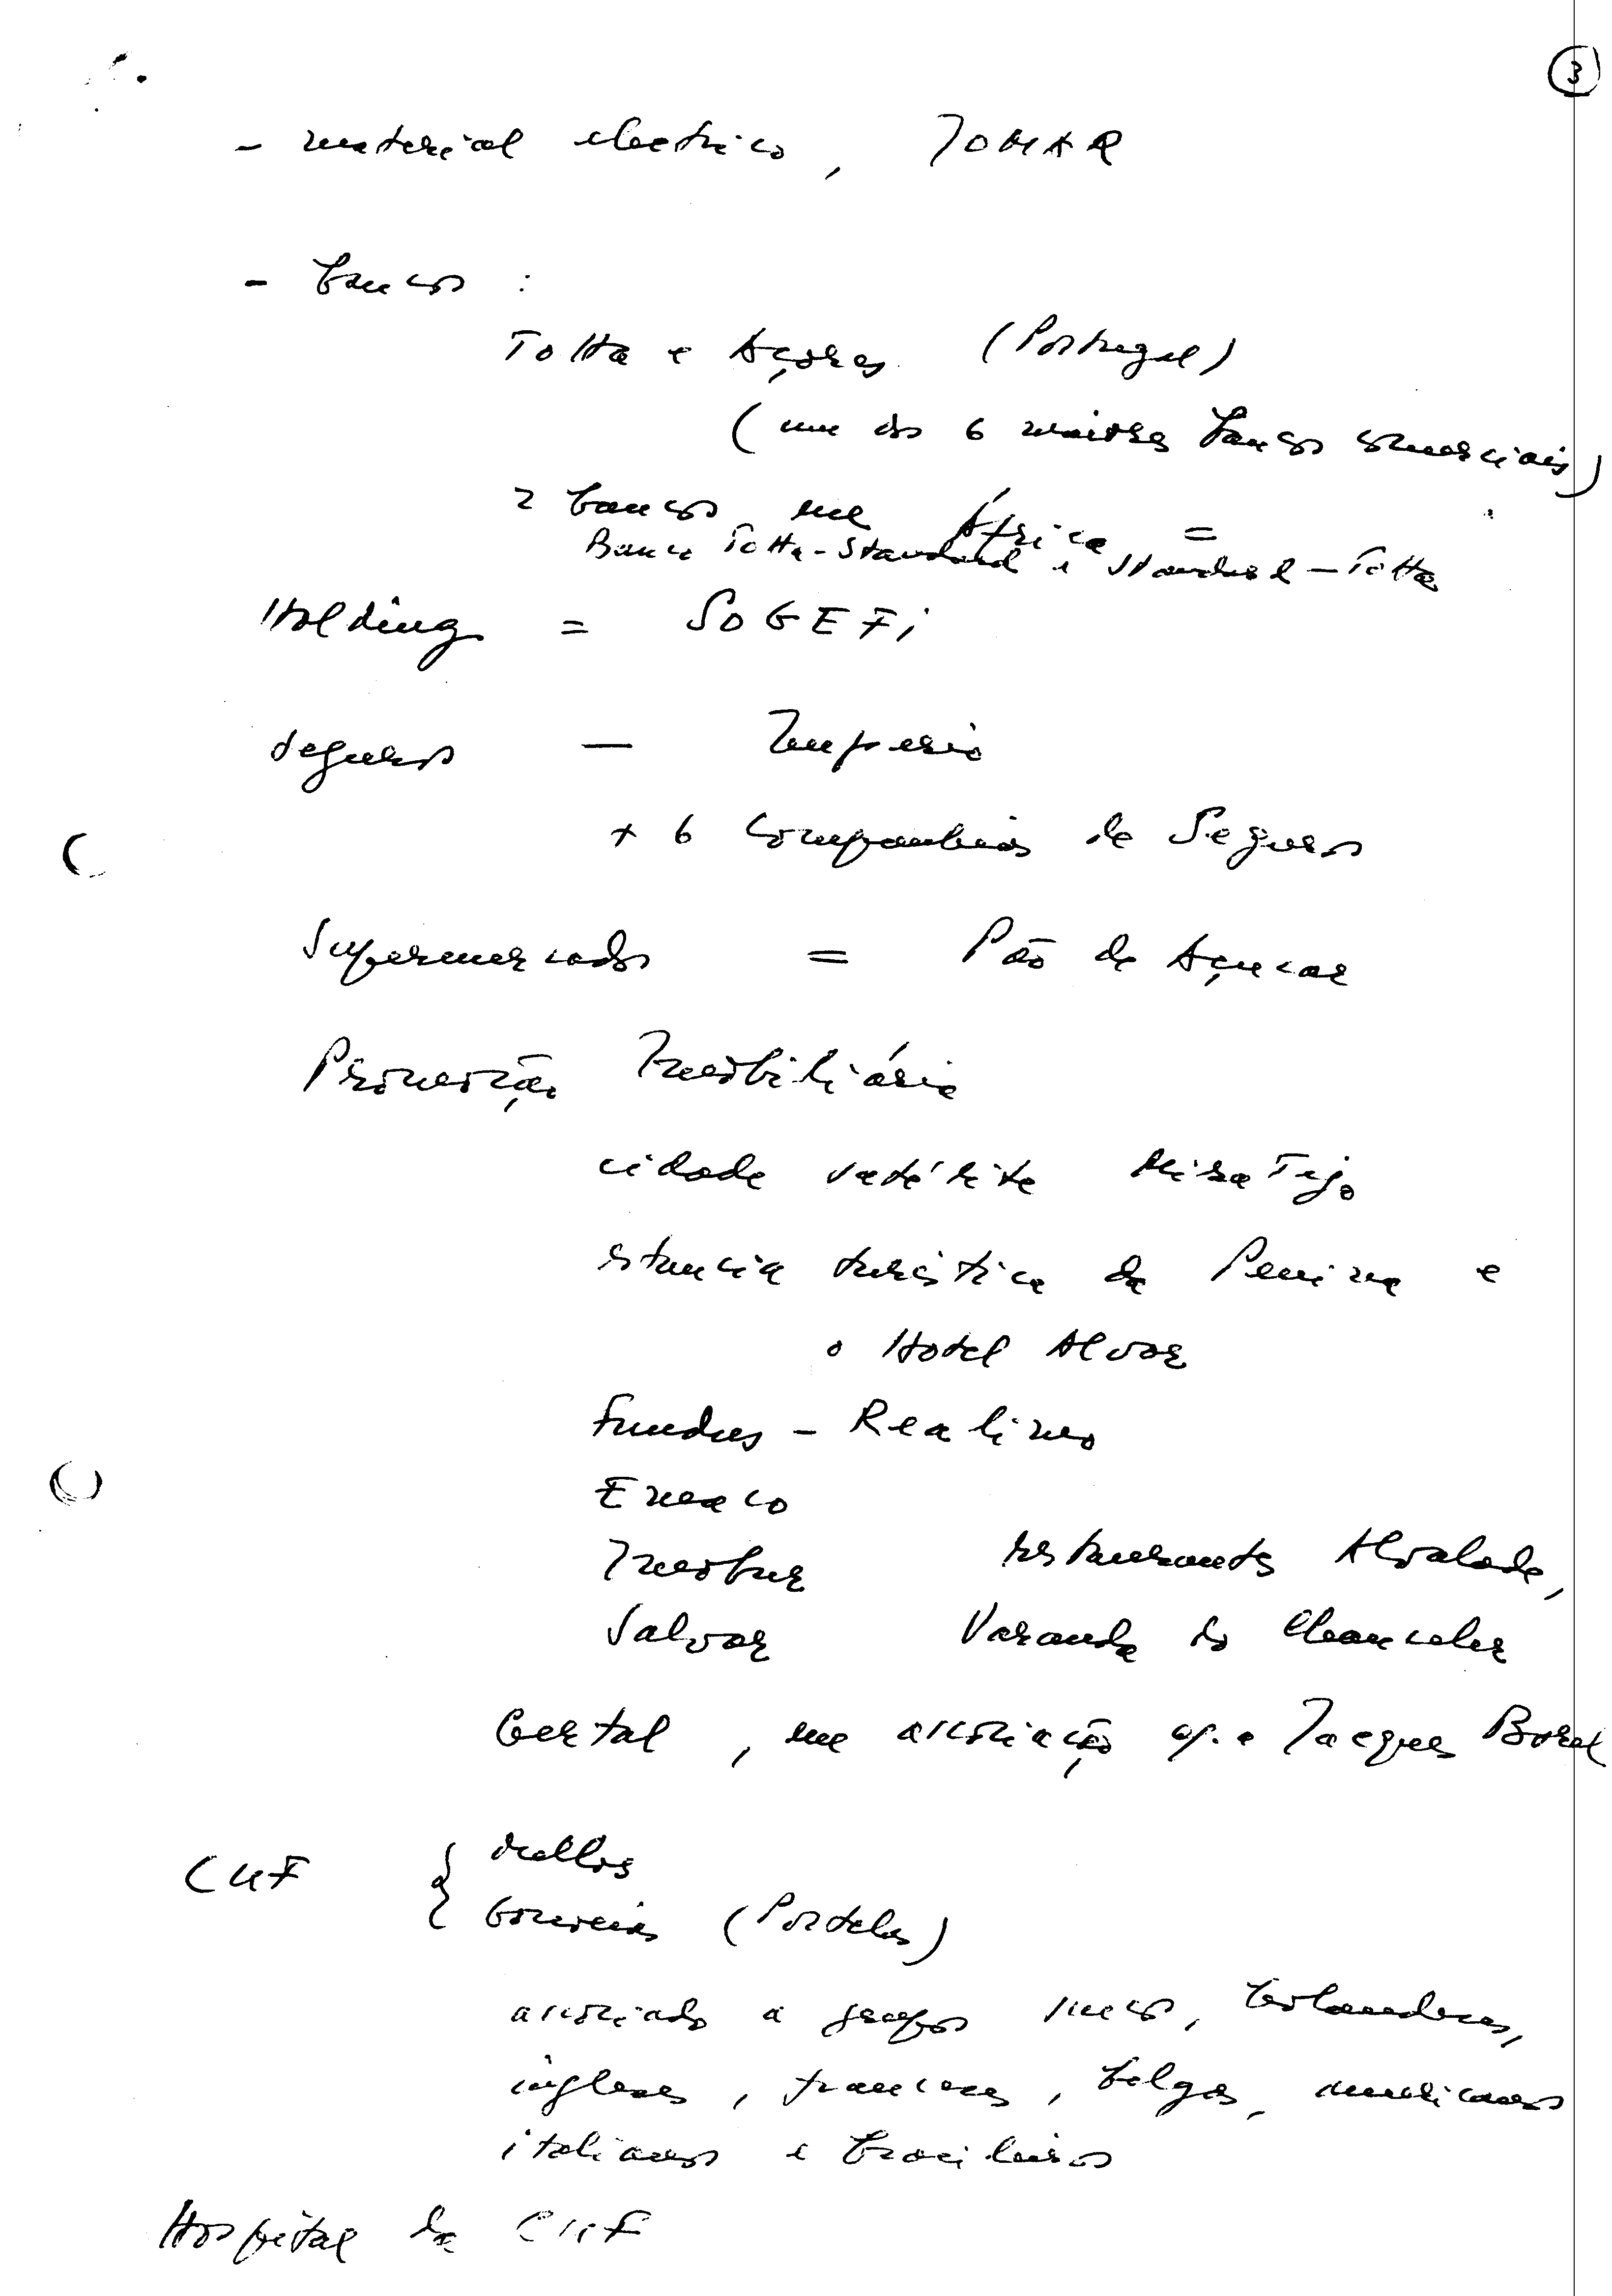 3
- material electrico, TOMAR
- bancos :
Totta e Açores (Portugal)
(um dos 6 maiores bancos comerciais)
2 bancos em África =
Banco Totta-Standard e Standard-Totta
Holding = SOGEFI
Seguros — Imperio
+ 6 Companhias de Seguros
Supermercados = Pão de Açucar
Promoção Imobiliária
cidade satélite Mira Tejo
estancia turística da Penina e
o Hotel Alvor
Fundus - Realimo
Emaco
Imobur restaurantes Alvalade,
Salvor Varanda do Chanceler
Gertal, em associação c/. a Jacques Borel
CUF { Mellos
Gouveias (Portelas)
associado a grupos suecos, holandeses,
ingleses, franceses, belgas, americanos
italianos e brasileiros
Hospital da CUF